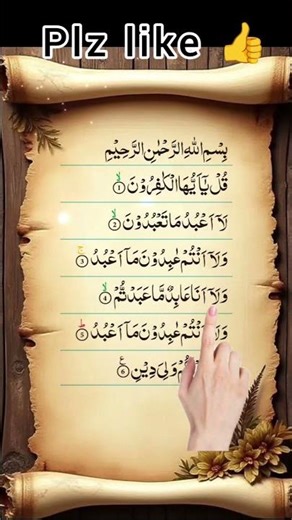 Plz like 👍
بِسْمِ اللهِ الرَّحْمٰنِ الرَّحِيْمِ
قُلْ يٰۤاَيُّهَا الْكٰفِرُوْنَ ۙ ①
لَاۤ اَعْبُدُ مَا تَعْبُدُوْنَ ۙ ②
وَلَاۤ اَنْتُمْ عٰبِدُوْنَ مَاۤ اَعْبُدُ ۚ ③
وَلَاۤ اَنَا عَابِدٌ مَّا عَبَدْتُّمْ ۙ ④
وَلَاۤ اَنْتُمْ عٰبِدُوْنَ مَاۤ اَعْبُدُ ؕ ⑤
وَلِيَ دِيْنِ ⑥